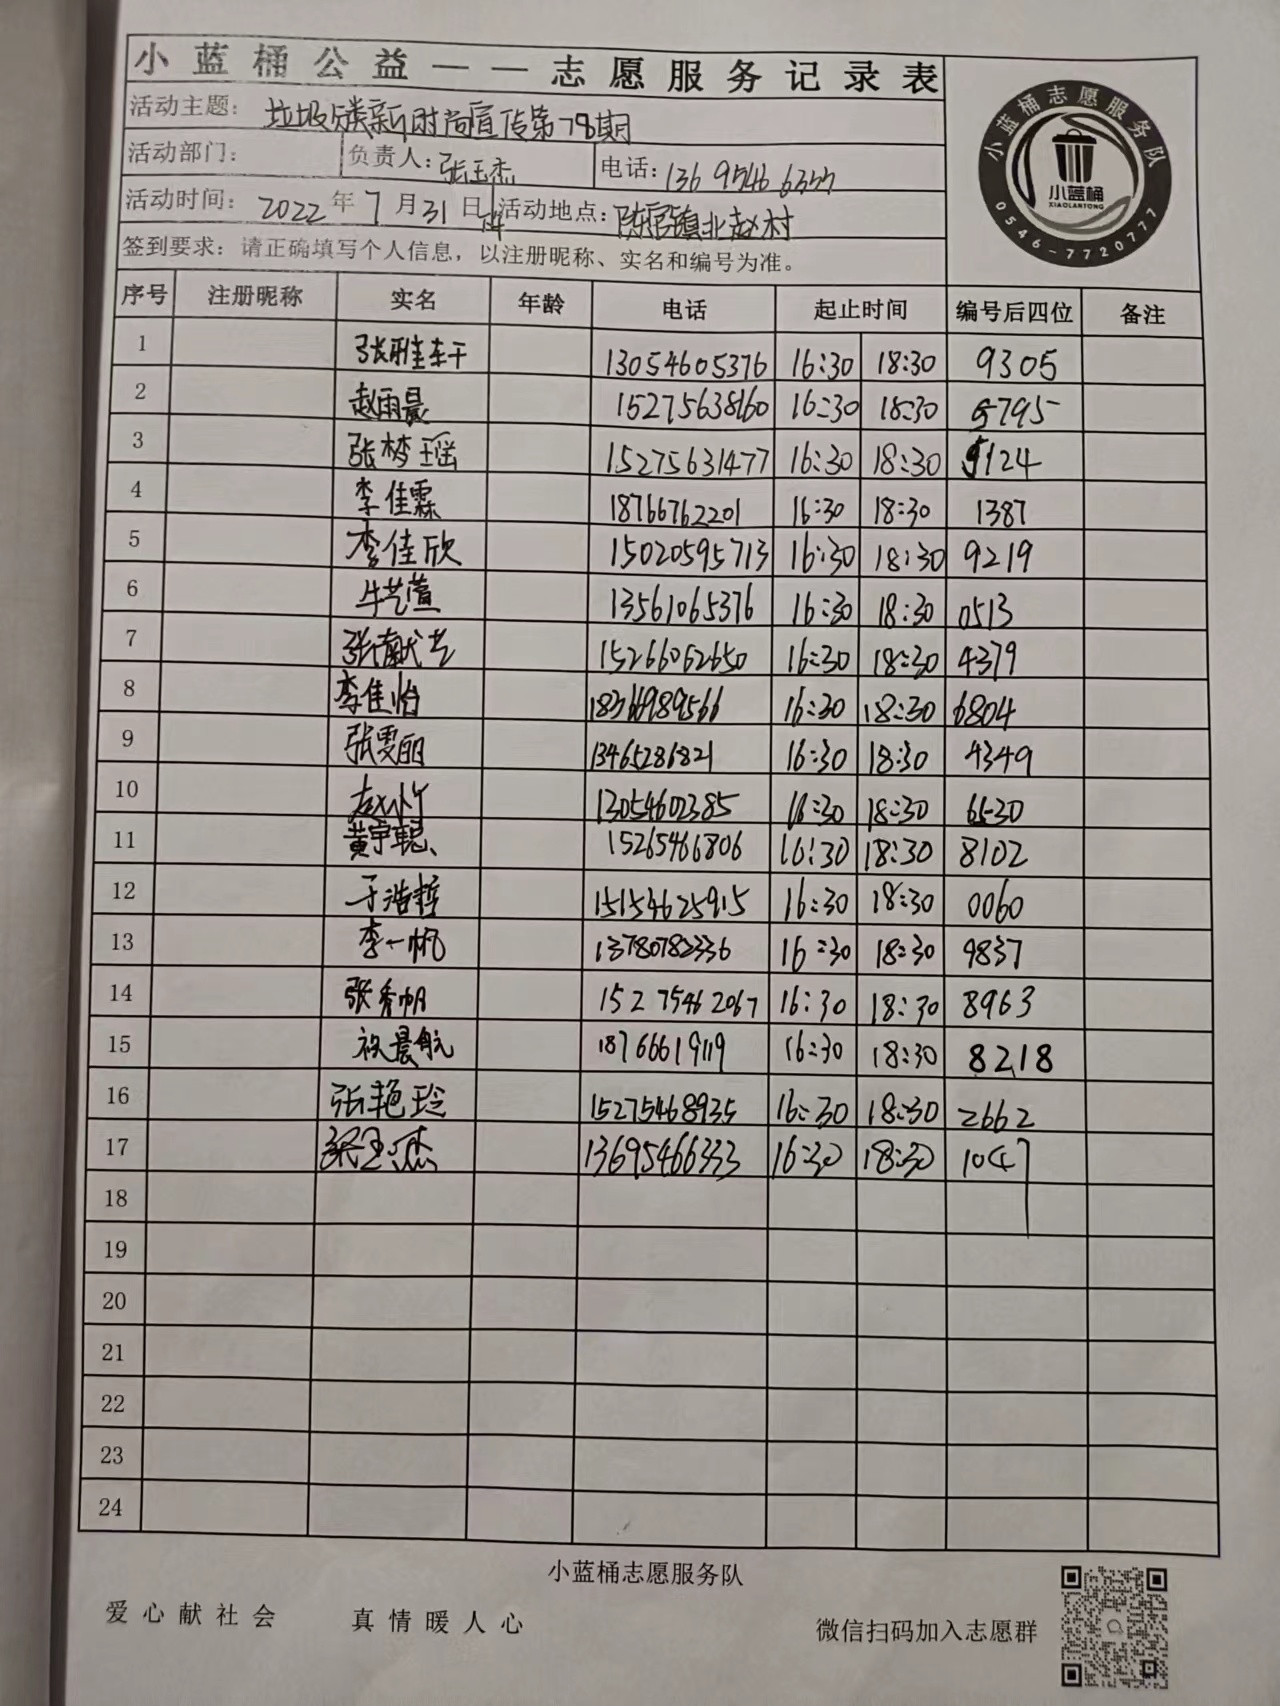 小蓝桶公益——志愿服务记录表
活动主题：垃圾分类新时尚宣传第78期
活动部门： 负责人：张玉杰 电话：136 9546 6333
活动时间：2022年7月31日 活动地点：陈官镇北赵村
签到要求：请正确填写个人信息，以注册昵称、实名和编号为准。
小蓝桶志愿服务队
小蓝桶
XIAOLANTONG
0546-7720777
序号 注册昵称 实名 年龄 电话 起止时间 编号后四位 备注
1 张雅轩 13054605376 16:30 18:30 9305
2 赵雨晨 15275638160 16:30 18:30 5795
3 张梦瑶 15275631477 16:30 18:30 9124
4 李佳霖 18766762201 16:30 18:30 1387
5 李佳欣 15020595713 16:30 18:30 9219
6 牛艺萱 13561065376 16:30 18:30 0513
7 张献艺 15266062650 16:30 18:30 4379
8 李佳怡 18366989566 16:30 18:30 6804
9 张雯丽 13465286821 16:30 18:30 4349
10 13054602385 16:30 18:30 6530
11 黄宇聪 15265466806 16:30 18:30 8102
12 于浩哲 15154625915 16:30 18:30 0060
13 李一帆 13780782336 16:30 18:30 9837
14 张秀帼 15275462067 16:30 18:30 8963
15 祝晨航 18766619119 16:30 18:30 8218
16 张艳玲 15275468935 16:30 18:30 2662
17 张玉杰 13695466333 16:30 18:30 1047
18
19
20
21
22
23
24
小蓝桶志愿服务队
爱心献社会 真情暖人心 微信扫码加入志愿群